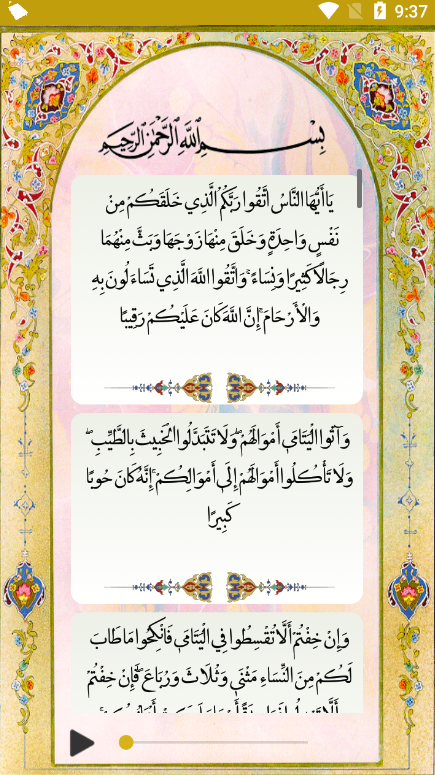 9:37
بِسْمِ اللَّهِ الرَّحْمَنِ الرَّحِيمِ
يَا أَيُّهَا النَّاسُ اتَّقُوا رَبَّكُمُ الَّذِي خَلَقَكُمْ مِنْ
نَفْسٍ وَاحِدَةٍ وَخَلَقَ مِنْهَا زَوْجَهَا وَبَثَّ مِنْهُمَا
رِجَالًا كَثِيرًا وَنِسَاءً ۚ وَاتَّقُوا اللَّهَ الَّذِي تَسَاءَلُونَ بِهِ
وَالْأَرْحَامَ ۚ إِنَّ اللَّهَ كَانَ عَلَيْكُمْ رَقِيبًا
وَآتُوا الْيَتَامَىٰ أَمْوَالَهُمْ ۖ وَلَا تَتَبَدَّلُوا الْخَبِيثَ بِالطَّيِّبِ ۖ
وَلَا تَأْكُلُوا أَمْوَالَهُمْ إِلَىٰ أَمْوَالِكُمْ ۚ إِنَّهُ كَانَ حُوبًا
كَبِيرًا
وَإِنْ خِفْتُمْ أَلَّا تُقْسِطُوا فِي الْيَتَامَىٰ فَانْكِحُوا مَا طَابَ
لَكُمْ مِنَ النِّسَاءِ مَثْنَىٰ وَثُلَاثَ وَرُبَاعَ ۖ فَإِنْ خِفْتُمْ